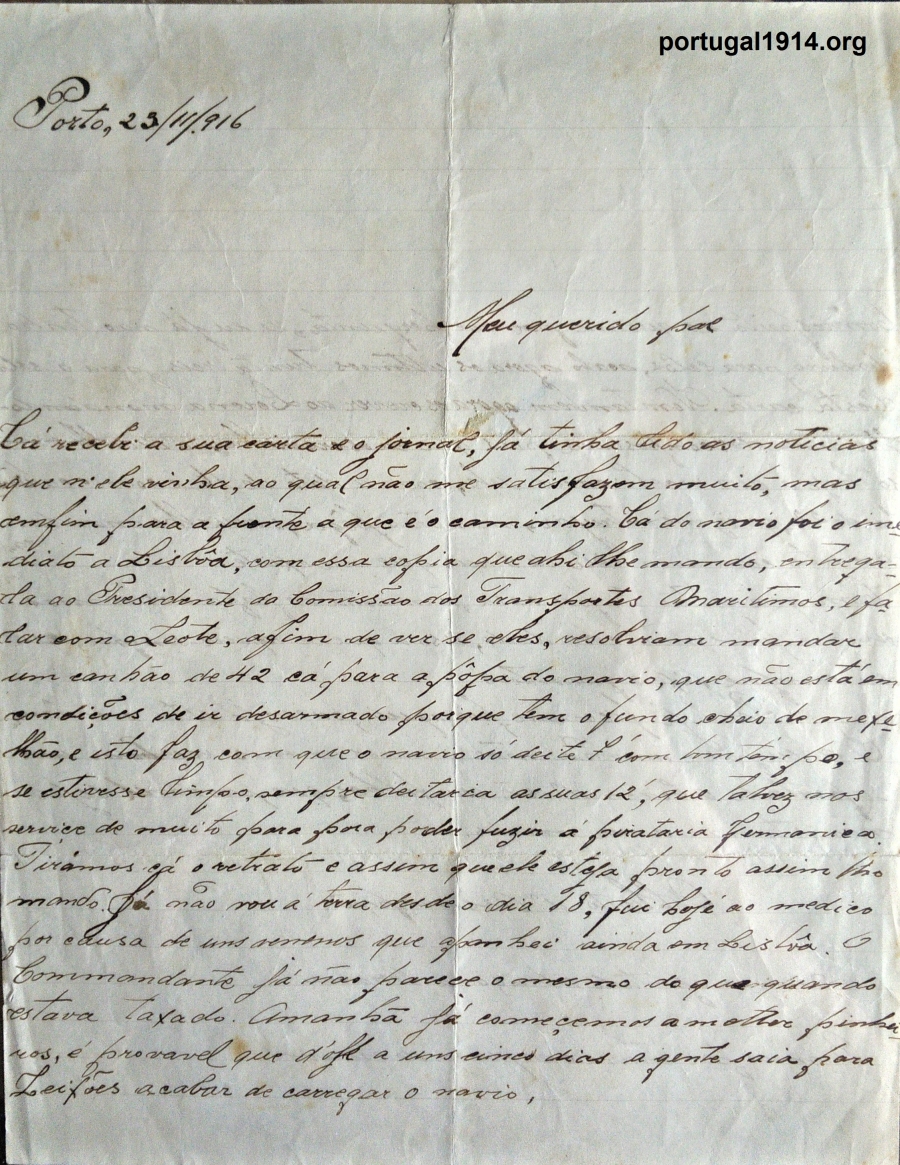 portugal1914.org
Porto, 23/11/916
Meu querido pae
Cá recebi a sua carta e o jornal, já tinha lido as noticias
que n'ele vinha, ao qual não me satisfazem muito, mas
emfim para a frente a que é o caminho. Cá do navio foi o ime-
diato a Lisbôa, com essa copia que ahi lhe mando, entrega-
la ao Presidente da Comissão dos Transportes Maritimos, e fa-
lar com Leote, afim de ver se eles, resolviam mandar
um canhão de 42 cá para a pôpa do navio, que não está em
condições de ir desarmado porque tem o fundo cheio de mexe-
lhão, e isto faz com que o navio só deite 7' com bom tempo, e
se estivesse limpo, sempre deitaria as suas 12', que talvez nos
service de muito para poder fugir á pirataria Germanica.
Tirámos cá o retrato e assim que ele esteja pronto assim lho
mando. Já não vou á terra desde o dia 18, fui hoje ao medico
por causa de uns venenos que apanhei ainda em Lisbôa. O
Commandante já não parece o mesmo do que quando
estava taxado. Amanhã já começemos a metter pinhei-
ros, é provavel que d'oje a uns cinco dias a gente saia para
Leixões acabar de carregar o navio,